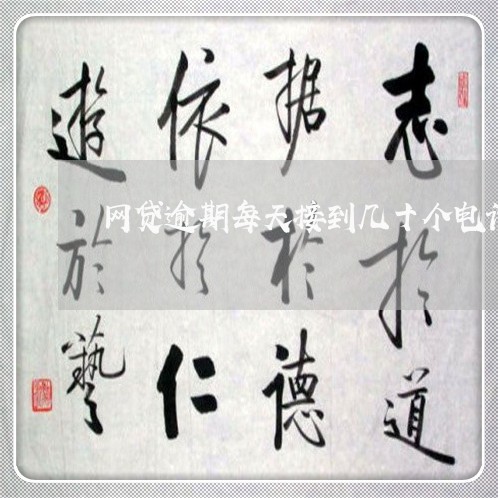 志於道
据於德
依於仁
遊於藝
网贷逾期每天接到几十个电